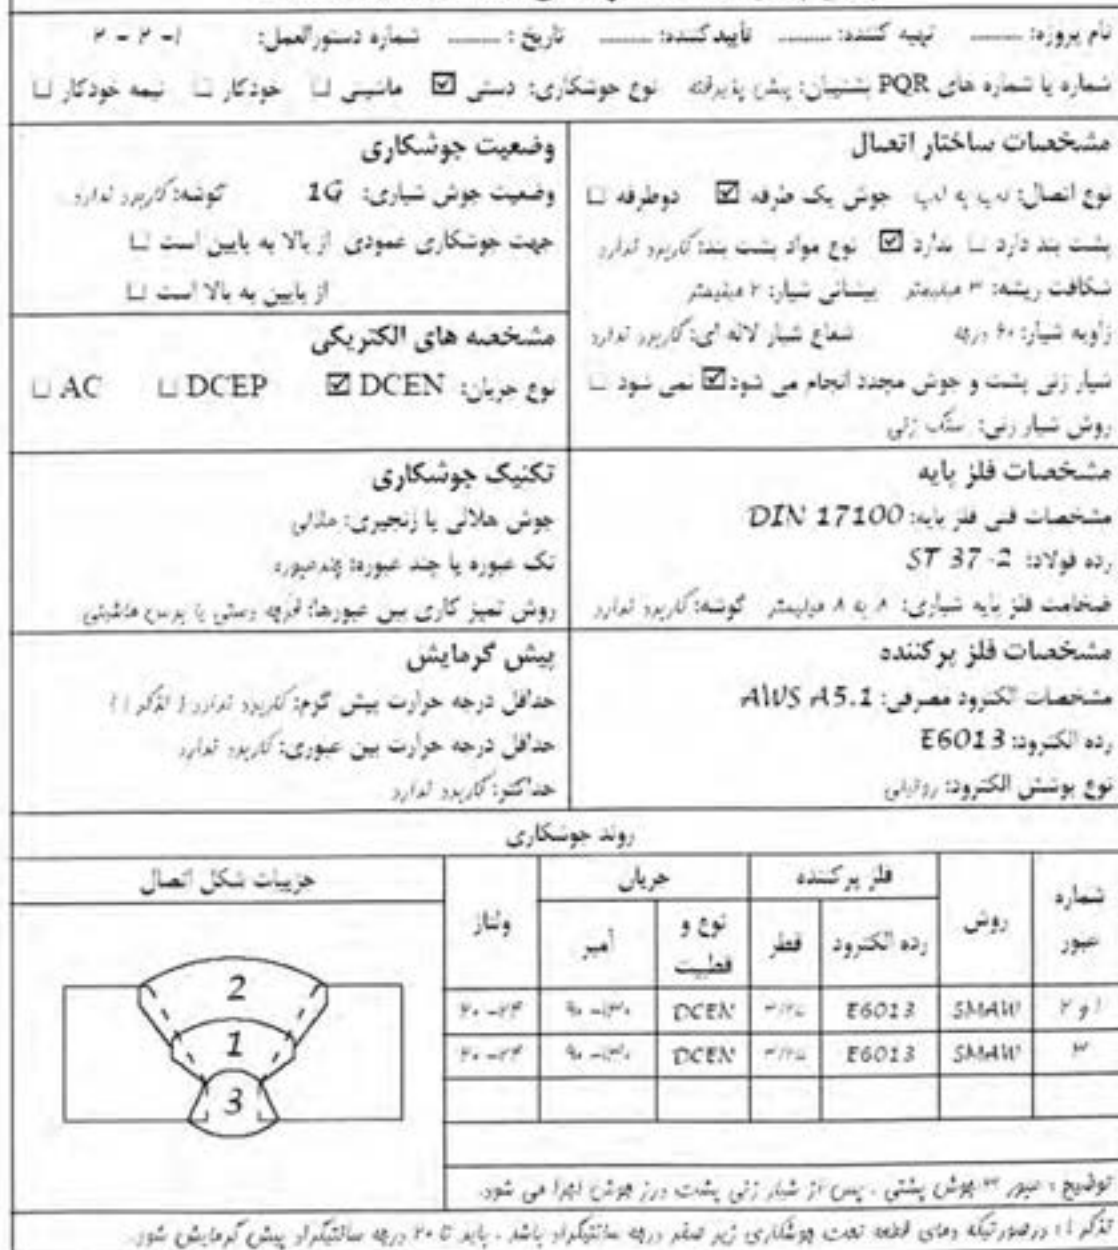 نام پروژه: ........ تهیه کننده: ........ تأیید کننده: ........ تاریخ : ........ شماره دستورالعمل: ۱- ۲ - ۲
شماره یا شماره های PQR پشتیبان: پیش پذیرفته نوع جوشکاری: دستی ☑ ماشینی ☐ خودکار ☐ نیمه خودکار ☐
مشخصات ساختار اتصال
نوع اتصال: لب به لب جوش یک طرفه ☑ دوطرفه ☐
پشت بند دارد ☐ ندارد ☑ نوع مواد پشت بند: کاربرد ندارد
شکافت ریشه: ۳ میلیمتر پیشانی شیار: ۲ میلیمتر
زاویه شیار: ۶۰ درجه شعاع شیار لاله ای: کاربرد ندارد
شیار زنی پشت و جوش مجدد انجام می شود ☑ نمی شود ☐
روش شیار زنی: سنگ زنی
وضعیت جوشکاری
وضعیت جوش شیاری: 1G گوشه: کاربرد ندارد
جهت جوشکاری عمودی از بالا به پایین است ☐
از پایین به بالا است ☐
مشخصه های الکتریکی
نوع جریان: DCEN ☑ DCEP ☐ AC ☐
مشخصات فلز پایه
مشخصات فنی فلز پایه: DIN 17100
رده فولاد: ST 37-2
ضخامت فلز پایه شیاری: ۸ به ۸ میلیمتر گوشه: کاربرد ندارد
تکنیک جوشکاری
جوش هلالی یا زنجیری: هلالی
تک عبوره یا چند عبوره: چندعبوره
روش تمیز کاری بین عبورها: فرچه دستی یا برس ماشینی
مشخصات فلز پرکننده
مشخصات الکترود مصرفی: AWS A5.1
رده الکترود: E6013
نوع پوشش الکترود: روتیلی
پیش گرمایش
حداقل درجه حرارت پیش گرم: کاربرد ندارد ( تذکر ۱ )
حداقل درجه حرارت بین عبوری: کاربرد ندارد
حداکثر: کاربرد ندارد
روند جوشکاری
شماره عبور روش فلز پرکننده جریان ولتاژ جزییات شکل اتصال
رده الکترود قطر نوع و قطبیت آمپر
۱ و ۲ SMAW E6013 ۳/۲۵ DCEN ۹۰-۱۳۰ ۲۰-۲۴
۳ SMAW E6013 ۳/۲۵ DCEN ۹۰-۱۳۰ ۲۰-۲۴
2
1
3
توضیح : عبور ۳ جوش پشتی ، پس از شیار زنی پشت درز جوش اجرا می شود.
تذکر ۱: درصورتیکه دمای قطعه تحت جوشکاری زیر صفر درجه سانتیگراد باشد ، باید تا ۲۰ درجه سانتیگراد پیش گرمایش شود.